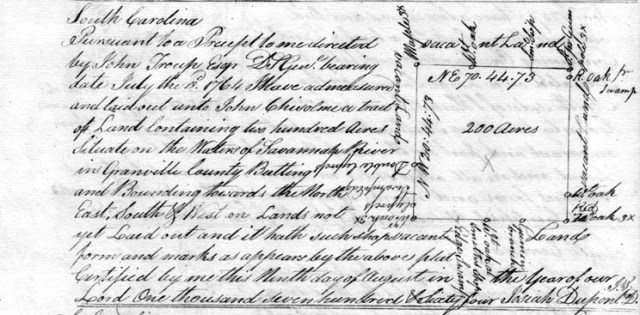 South Carolina
Pursuant to a Precept to me directed
by John Troup Esqr D. S. Genl. bearing
date July the 3d. 1764 I have admeasured
and laid out unto John Chivolme a tract
of Land containing two hundred Acres
Situate on the Waters of Savannah River
in Granville County Butting
and Bounding towards the North
East, South & West on Lands not
yet Laid out and it hath such shape
form and marks as appears by the above plat
Certified by me this Ninth day of August in the Year of our
Lord One thousand seven hundred & Sixty four Josiah Dupont D. S.
vacant Land
NE 70. 44. 73
R. oak
Swamp
N W 20. 44. 73
200 Acres
vacant Land
vacant Land
Oak
Red
Oak 3x
vacant
Land